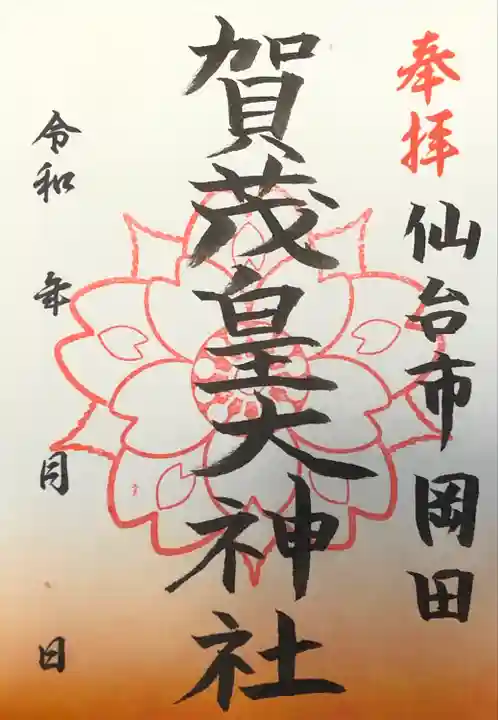 奉拝
仙台市岡田
賀茂皇大神社
令和 年 月 日